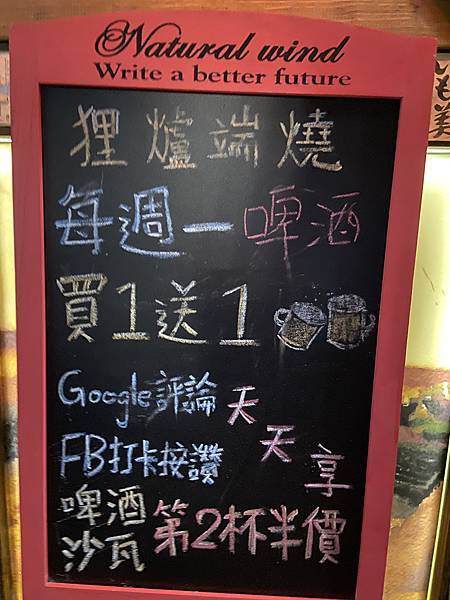 Natural wind
Write a better future
狸爐端燒
每週一啤酒
買1送1
Google評論
FB打卡按讚
天天享
啤酒
沙瓦
第2杯半價
美